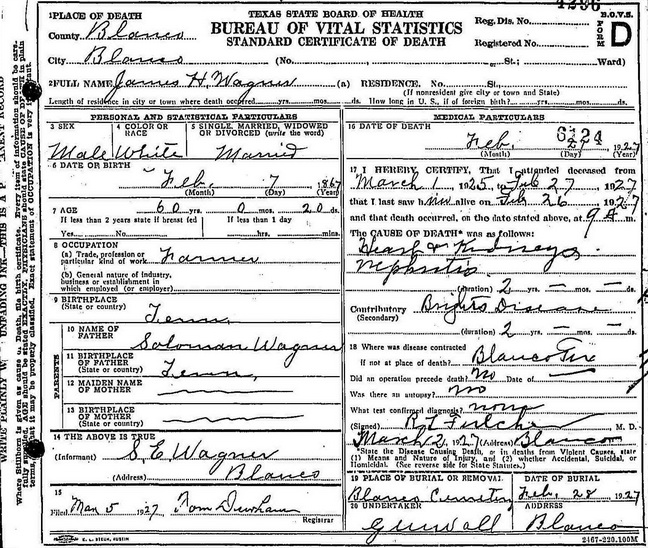 4286
B.O.V.S.
FORM D
TEXAS STATE BOARD OF HEALTH
BUREAU OF VITAL STATISTICS
STANDARD CERTIFICATE OF DEATH
Reg. Dis. No.
Registered No.
1 PLACE OF DEATH
County Blanco
City Blanco (No. St.; Ward)
2 FULL NAME James H. Wagner (a) RESIDENCE. No. St.
(If nonresident give city or town and State)
Length of residence in city or town where death occurred yrs. mos. ds. How long in U. S., if of foreign birth? yrs. mos. ds.
PERSONAL AND STATISTICAL PARTICULARS
3 SEX Male
4 COLOR OR RACE White
5 SINGLE, MARRIED, WIDOWED OR DIVORCED (write the word) Married
6 DATE OF BIRTH
Feb. 7 1867
(Month) (Day) (Year)
7 AGE 60 yrs. 0 mos. 20 ds.
If less than 2 years state if breast fed If less than 1 day
Yes No hrs. mins.
8 OCCUPATION
(a) Trade, profession or particular kind of work Farmer
(b) General nature of industry, business or establishment in which employed (or employer)
9 BIRTHPLACE
(State or country) Tenn.
PARENTS
10 NAME OF FATHER Soloman Wagner
11 BIRTHPLACE OF FATHER
(State or country) Tenn.
12 MAIDEN NAME OF MOTHER
13 BIRTHPLACE OF MOTHER
(State or country)
14 THE ABOVE IS TRUE
(Informant) S. E. Wagner
(Address) Blanco
15
Filed Mar 5 1927 Tom Durham
Registrar
MEDICAL PARTICULARS
16 DATE OF DEATH 6124
Feb. 27 1927
(Month) (Day) (Year)
17 I HEREBY CERTIFY, That I attended deceased from
March 1 1925, to Feb 27 1927
that I last saw him alive on Feb 26 1927
and that death occurred, on the date stated above, at 9 A m.
The CAUSE OF DEATH* was as follows:
Heart & Kidneys
Nephritis
(duration) 2 yrs. mos. ds.
Contributory Brights Disease
(Secondary)
(duration) 2 yrs. mos. ds.
18 Where was disease contracted
If not at place of death? Blanco Tex
Did an operation precede death? No Date of
Was there an autopsy? No
What test confirmed diagnosis? none
(Signed) M. D.
March 2, 1927 (Address) Blanco
*State the Disease Causing Death, or in deaths from Violent Causes, state
(1) Means and Nature of Injury, and (2) whether Accidental, Suicidal, or
Homicidal. (See reverse side for State Statutes.)
19 PLACE OF BURIAL OR REMOVAL
Blanco Cemetery
DATE OF BURIAL
Feb. 28 1927
20 UNDERTAKER
ADDRESS
Blanco
E. L. STECK, AUSTIN
2467-220-100M